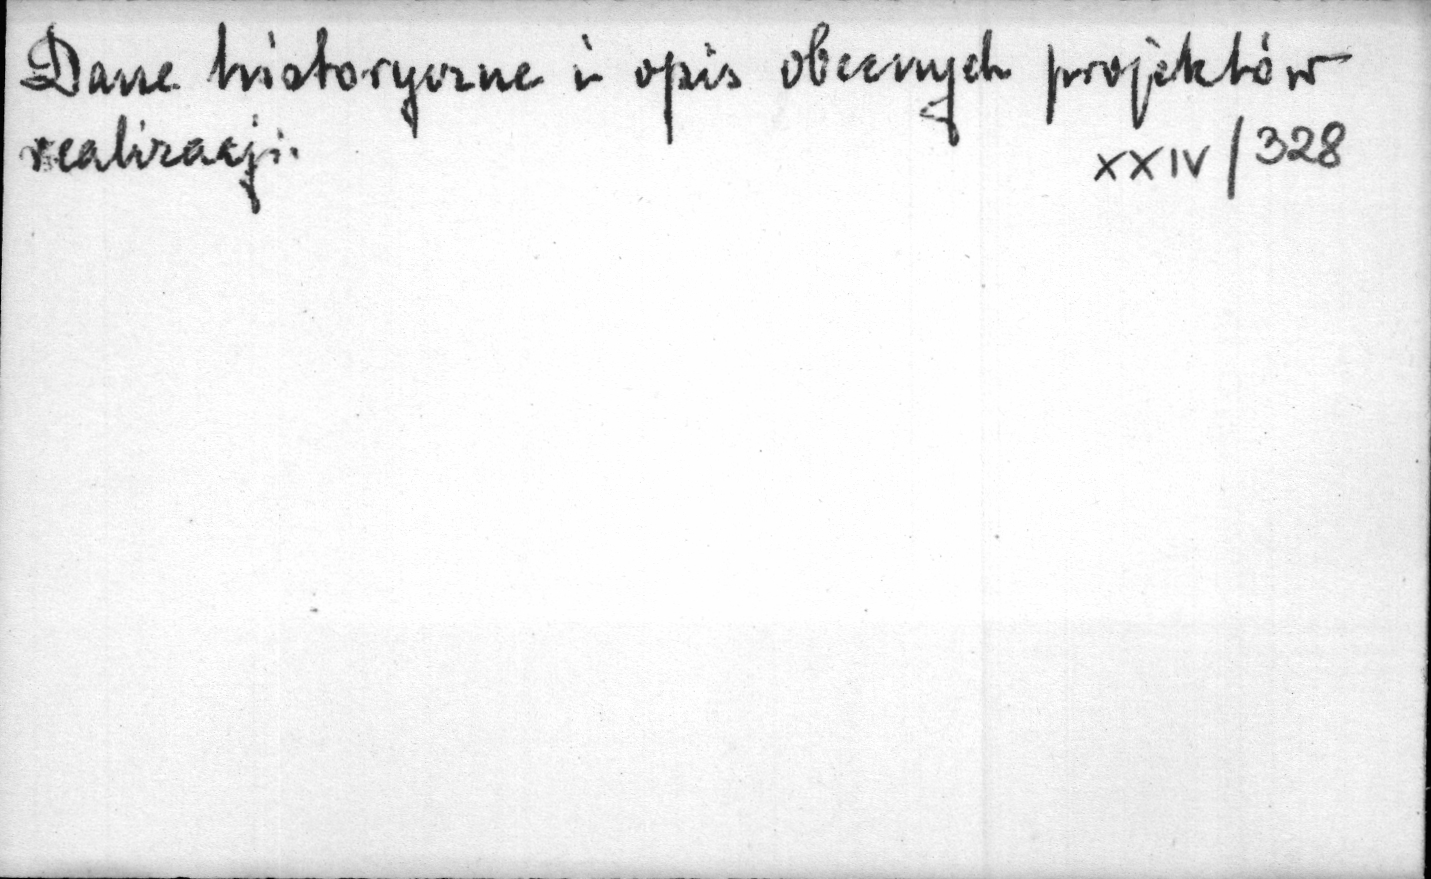 Dane historyczne i opis obecnych projektów
realizacji.
XXIV/328